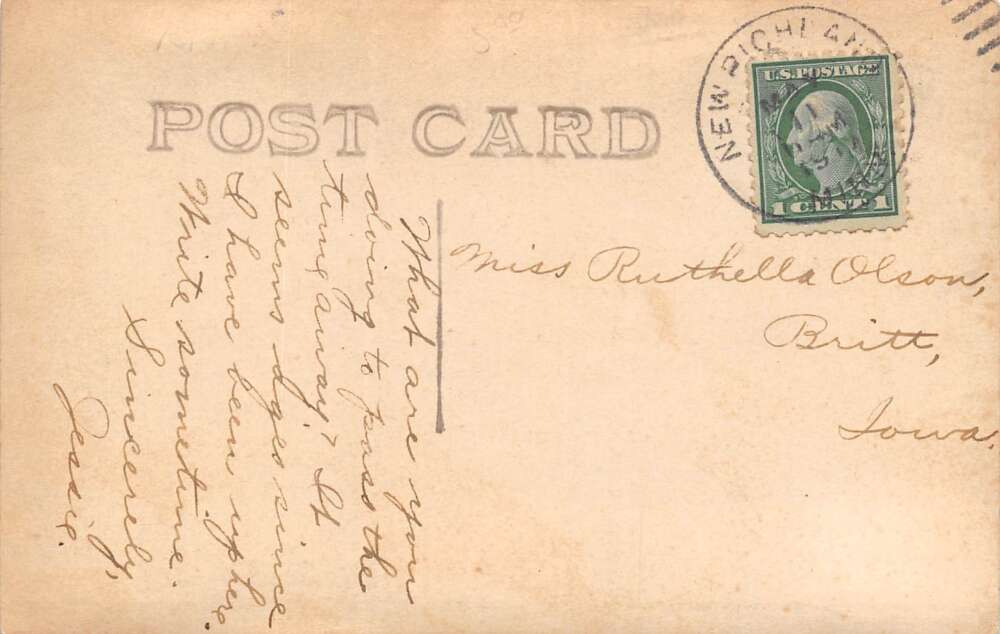 POST CARD
NEW RICHLAND
MINN.
MAY
11
AM
U.S. POSTAGE
1 CENT 1
Miss Ruthella Olson,
Britt,
Iowa.
What are you
doing to pass the
time away? It
seems ages since
I have been up here.
Write sometime.
Sincerely,
Jessie.